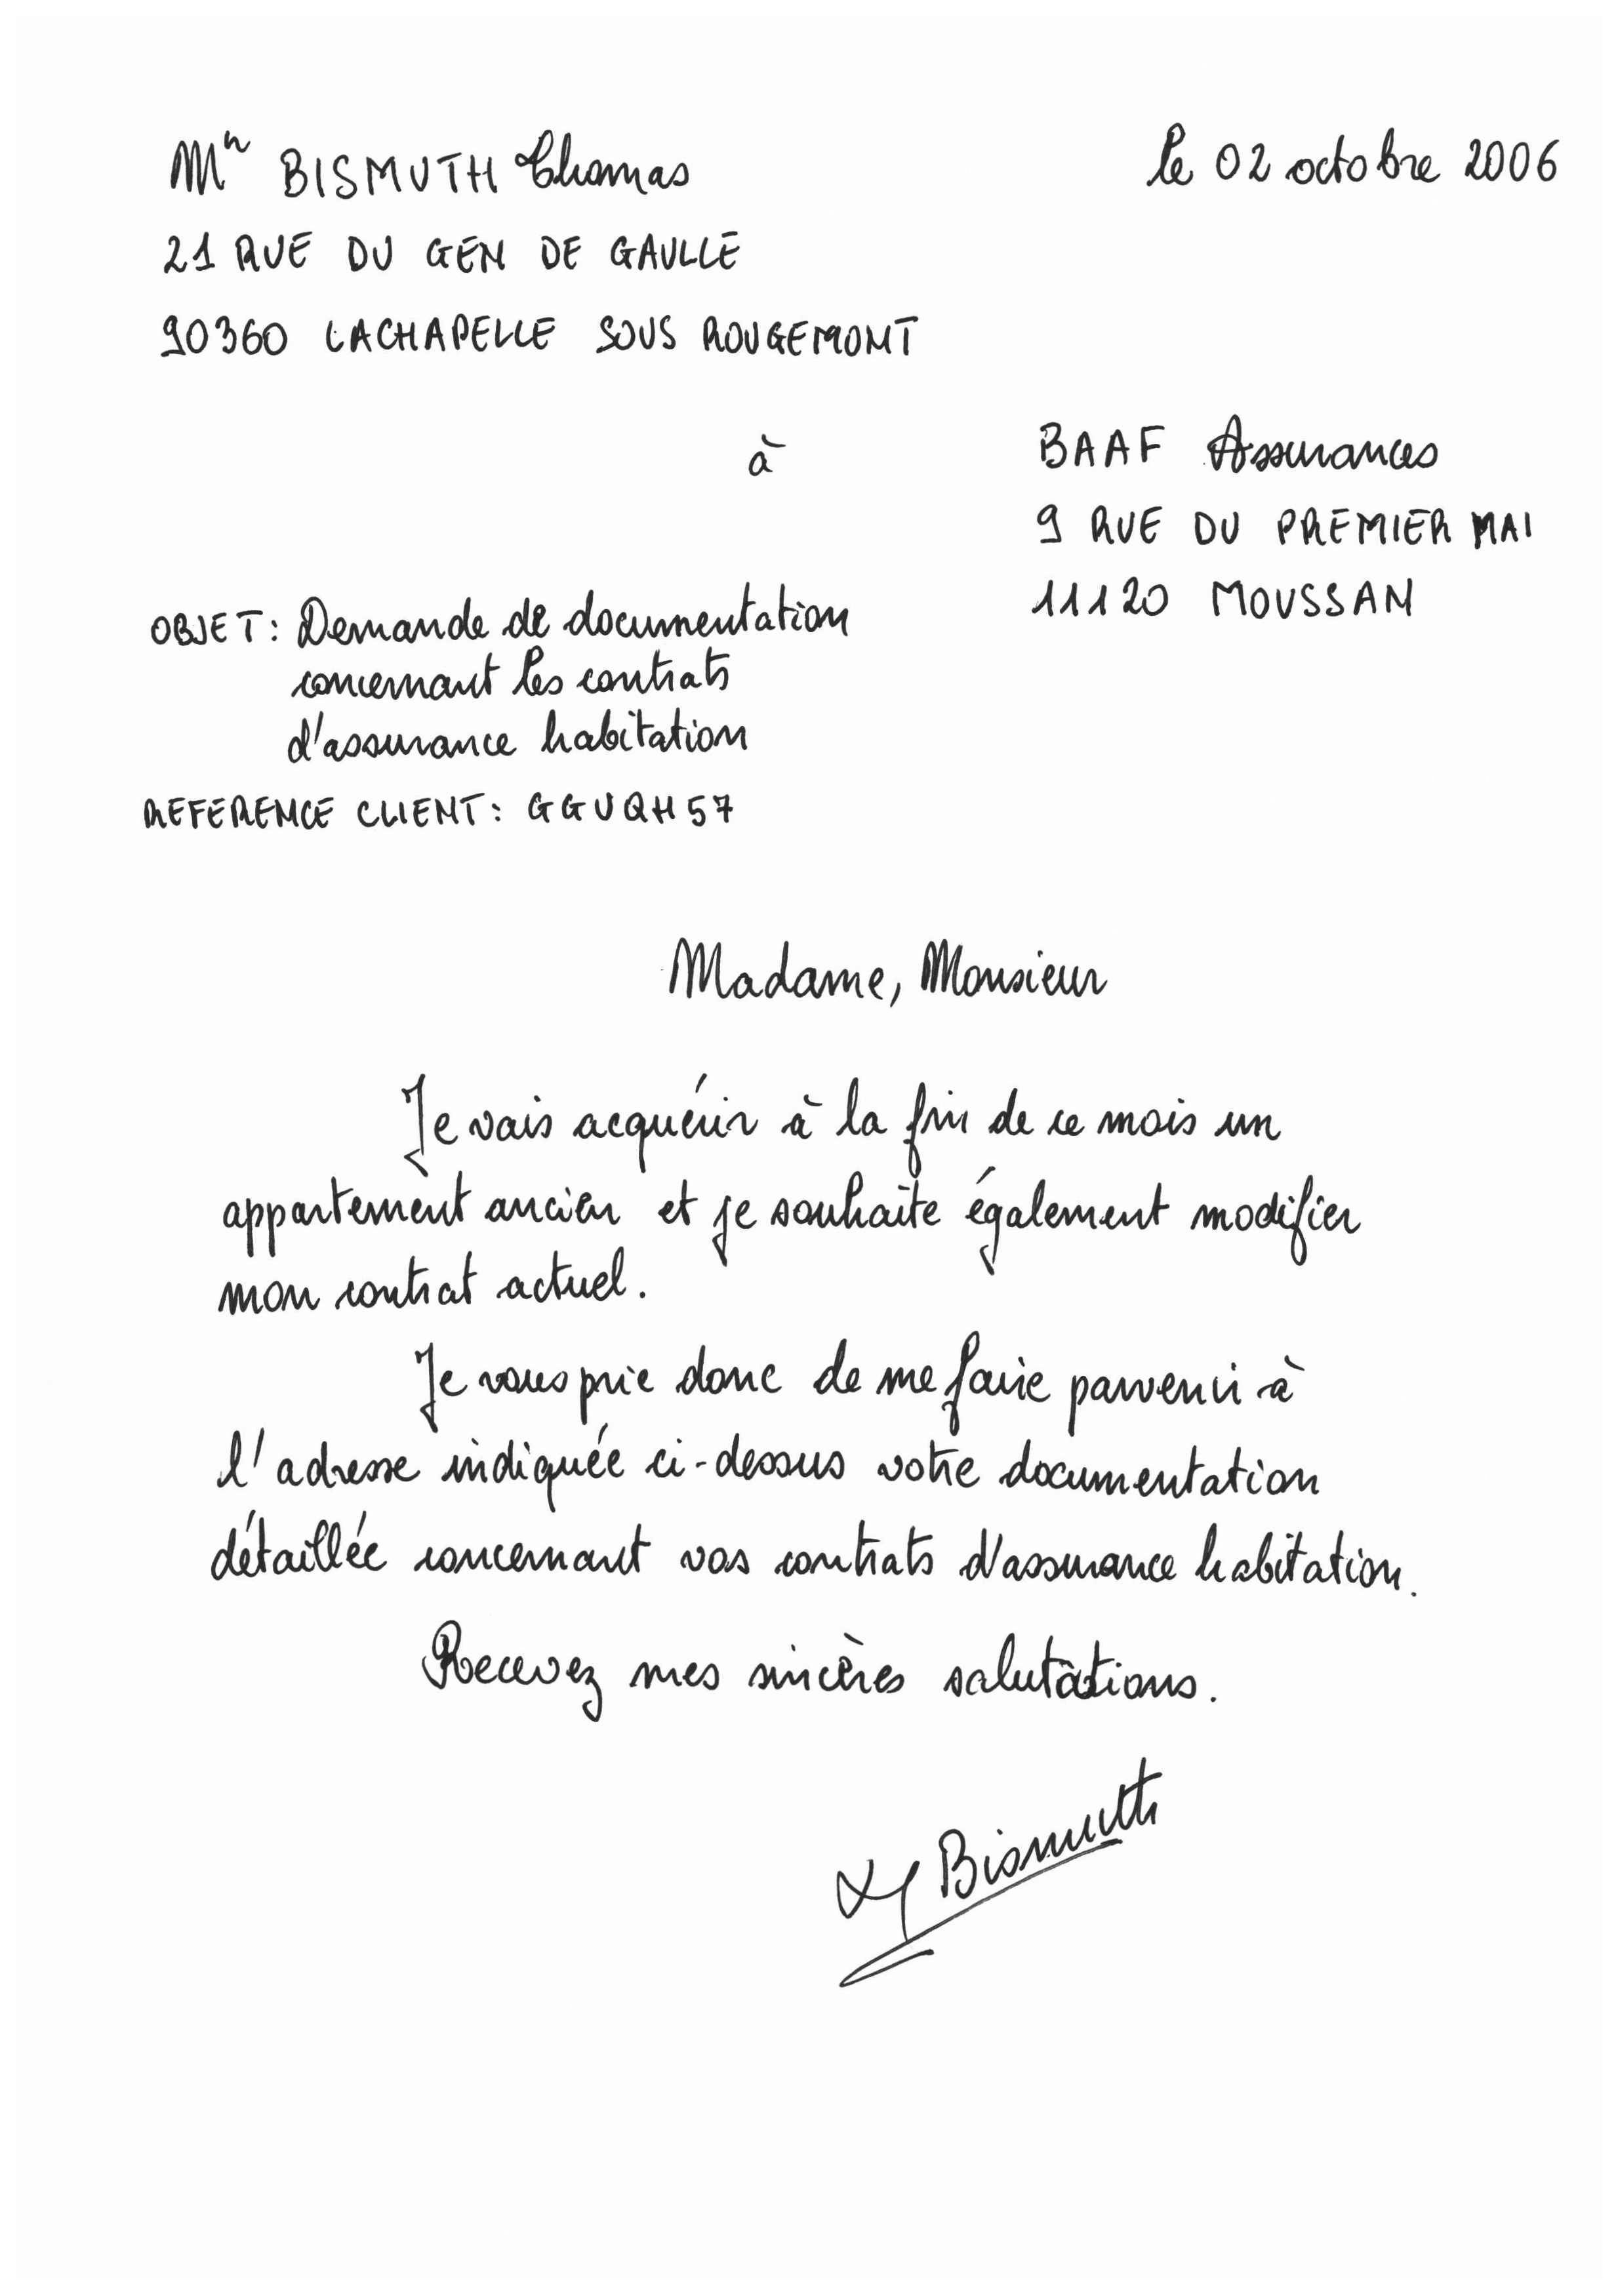 Mr BISMUTH Thomas
le 02 octobre 2006
21 RUE DU GEN DE GAULLE
90360 LACHAPELLE SOUS ROUGEMONT
à
BAAF Assurances
9 RUE DU PREMIER MAI
11120 MOUSSAN
OBJET: Demande de documentation
concernant les contrats
d'assurance habitation
REFERENCE CLIENT: GGUQH57
Madame, Monsieur
Je vais acquérir à la fin de ce mois un
appartement ancien et je souhaite également modifier
mon contrat actuel.
Je vous prie donc de me faire parvenir à
l'adresse indiquée ci-dessus votre documentation
détaillée concernant vos contrats d'assurance habitation.
Recevez mes sincères salutations.
Bismuth